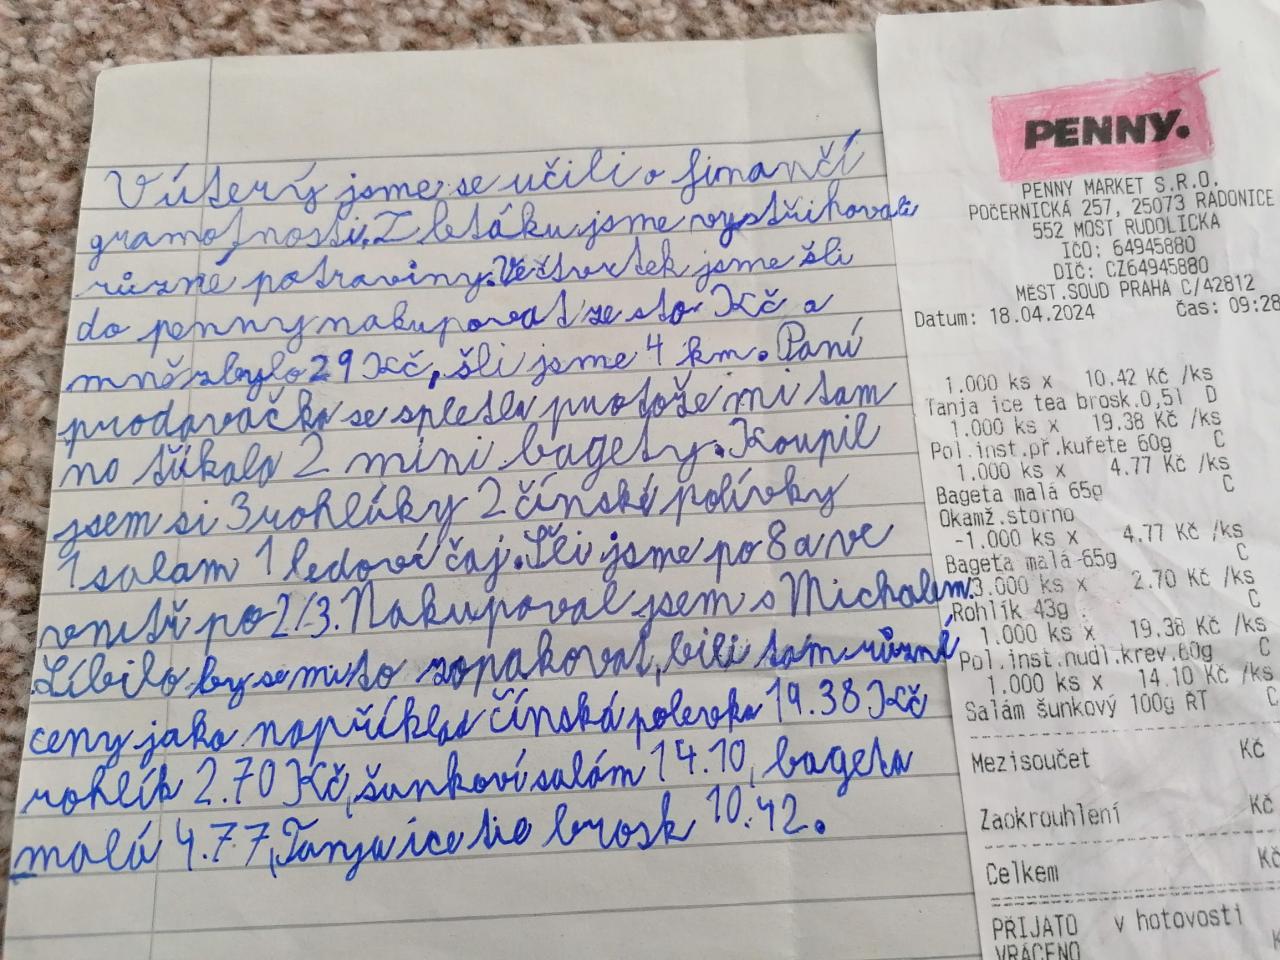 V úterý jsme se učili o finančí
gramotnosti. Z letáku jsme vystřihovali
různé potraviny. Ve čtvrtek jsme šli
do penny nakupovat ze sto Kč a
mně zbylo 29 Kč, šli jsme 4 km. Paní
prodavačka se spletla protože mi tam
na ťukala 2 mini bagety. Koupil
jsem si 3 rohlíky 2 čínské polívky
1 salam 1 ledoví čaj. Šli jsme po 8 a ve
vnitř po 2/3. Nakupoval jsem s Michalem.
Líbilo by se mi to zopakovat, bili tam různé
ceny jako například čínská polevka 19.38 Kč
rohlík 2.70 Kč, šunkoví salám 14.10, bageta
malá 4.77, Tanja ice tie brosk 10.42.
PENNY.
PENNY MARKET S.R.O.
POČERNICKÁ 257, 25073 RADONICE
552 MOST RUDOLICKA
IČO: 64945880
DIČ: CZ64945880
MĚST.SOUD PRAHA C/42812
Datum: 18.04.2024 Čas: 09:28
1.000 ks x 10.42 Kč /ks
Tanja ice tea brosk.0,5l D
1.000 ks x 19.38 Kč /ks
Pol.inst.př.kuřete 60g C
1.000 ks x 4.77 Kč /ks
Bageta malá 65g C
Okamž.storno
-1.000 ks x 4.77 Kč /ks
Bageta malá 65g C
3.000 ks x 2.70 Kč /ks
Rohlík 43g C
1.000 ks x 19.38 Kč /ks
Pol.inst.nudl.krev.60g C
1.000 ks x 14.10 Kč /ks
Salám šunkový 100g RT C
Mezisoučet Kč
Zaokrouhlení Kč
Celkem Kč
PŘIJATO v hotovosti
VRÁCENO K